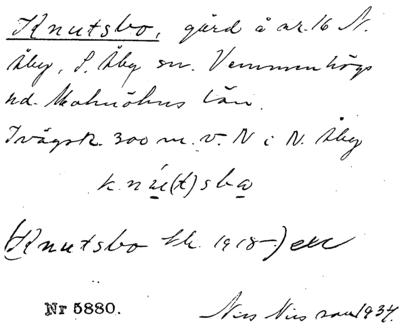 Knutsbo, gård å nr. 16 N.
Åby, S. Åby sn. Vemmenhögs
hd. Malmöhus län.
Tvågsk. 300 m. v. N i N. Åby
knú(t)sba
(Knutsbo fk. 1918-)
Nr 5880. Nils Nilsson 1934.